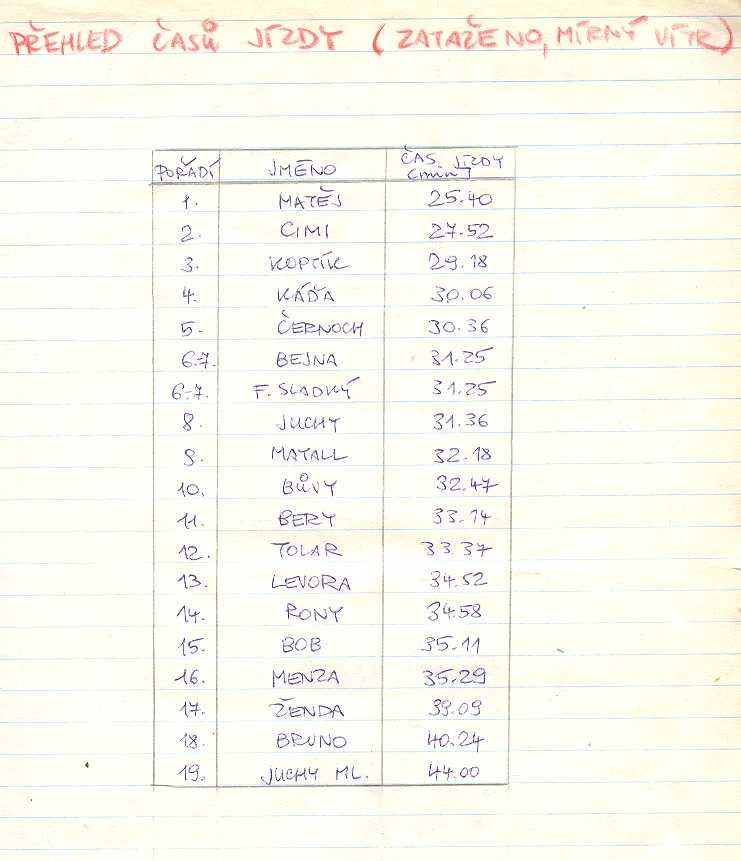 PŘEHLED ČASŮ JÍZDY (ZATAŽENO, MÍRNÝ VÍTR)
POŘADÍ JMÉNO ČAS JÍZDY [min]
1. MATĚJ 25.40
2. CIMI 27.52
3. KOPTÍK 29.18
4. KÁĎA 30.06
5. ČERNOCH 30.36
6.-7. BEJNA 31.25
6.-7. F. SLADKÝ 31.25
8. JUCHY 31.36
9. MATALL 32.18
10. BŮVY 32.47
11. BERY 33.14
12. TOLAR 33.37
13. LEVORA 34.52
14. RONY 34.58
15. BOB 35.11
16. MENZA 35.29
17. ŽENDA 39.09
18. BRUNO 40.24
19. JUCHY ML. 44.00